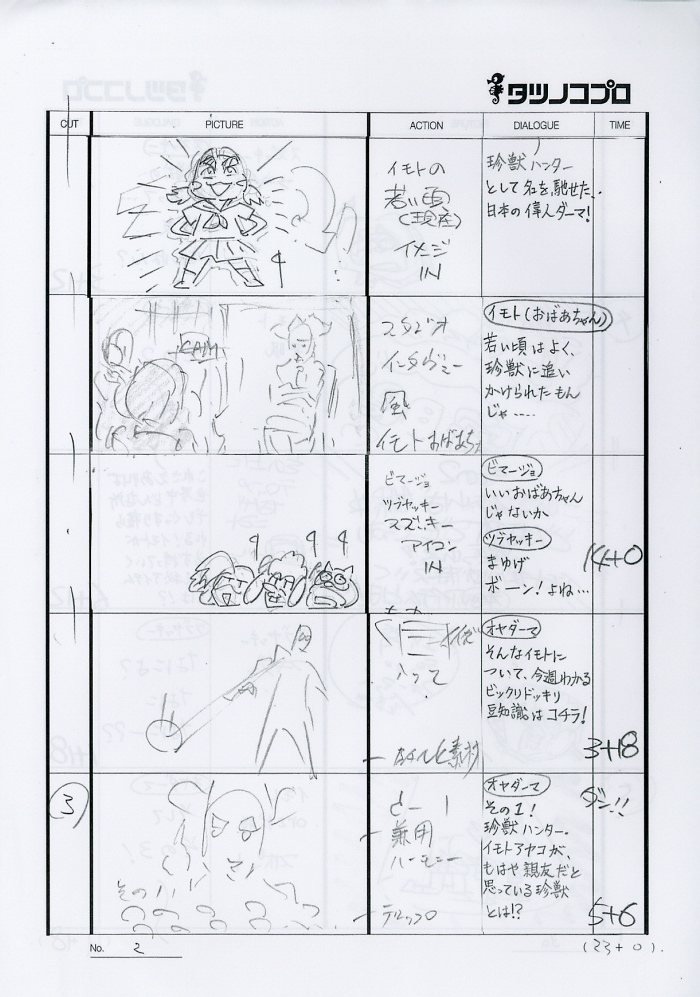 タツノコプロ
CUT PICTURE ACTION DIALOGUE TIME
イモトの
若い頃
(現在)
イメージ
IN
珍獣ハンター
として名を馳せた、
日本の偉人ダーマ!
CAM
スタジオ
インタヴュー
風
イモトおばあち
イモト(おばあちゃん)
若い頃はよく、
珍獣に追い
かけられたもん
じゃ……
ビマージョ
ツブヤッキー
スズッキー
アイコン
IN
ビマージョ
いいおばあちゃん
じゃないか
ツブヤッキー
まゆげ
ボーン!よね…
14+0
入って
オヤダーマ
そんなイモトに
ついて、今週わかる
ビックリドッキリ
豆知識はコチラ!
3+18
3
その1!
兼用
ハーモニー
テロップ
オヤダーマ
その1!
珍獣ハンター・
イモトアヤコが、
もはや親友だと
思っている珍獣
とは!?
ダン!!
5+6
No. 2
(23+0)